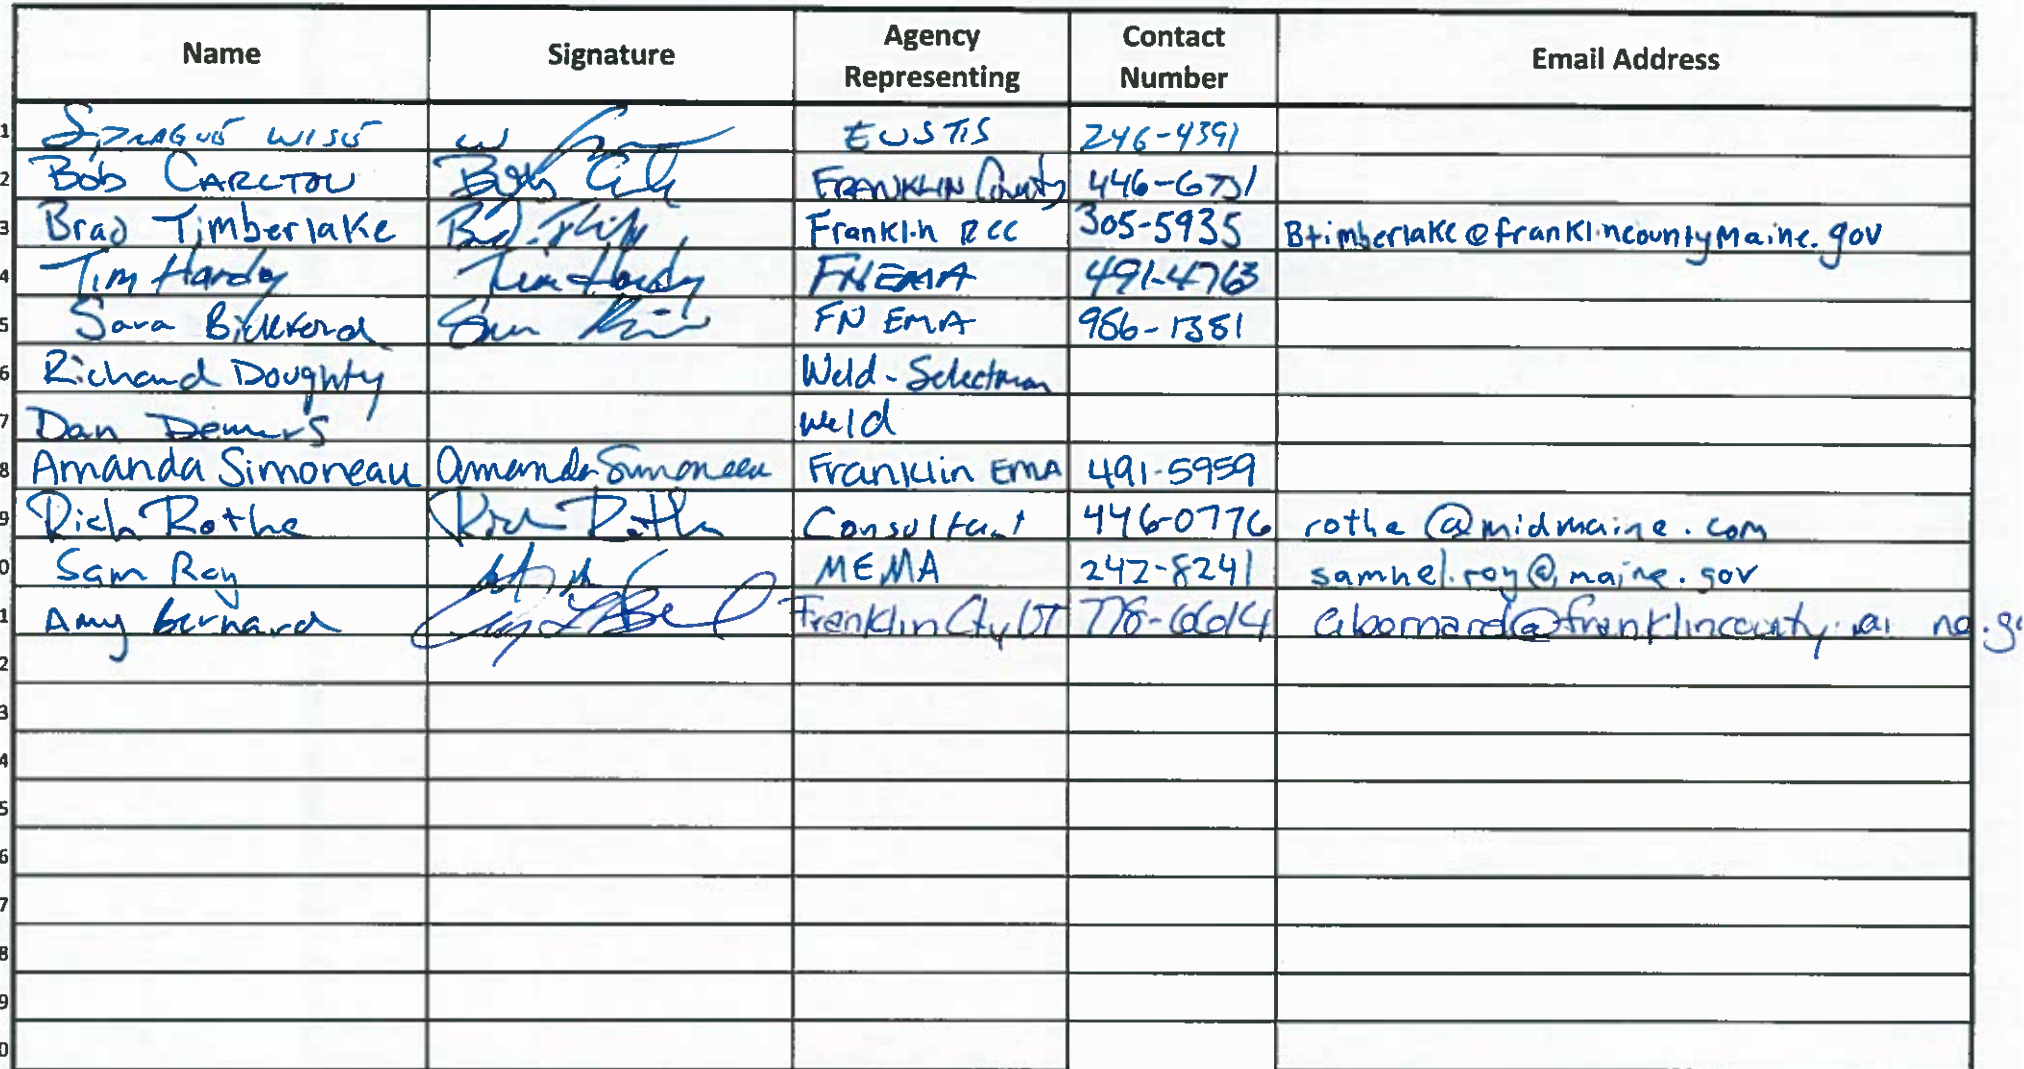 Name Signature Agency Representing Contact Number Email Address
1 Sprague Wise EUSTIS 246-4391
2 Bob CARLTON FRANKLIN County 446-6731
3 Brad Timberlake Franklin RCC 305-5935 Btimberlake@franklincountymaine.gov
4 Tim Hardy Tim Hardy FNEMA 491-4763
5 Sara Bickford FN EMA 986-1381
6 Richard Doughty Weld-Selectman
7 Dan Demers Weld
8 Amanda Simoneau Amanda Simoneau Franklin EMA 491-5959
9 Rich Rothe Rich Rothe Consultant 446-0776 rothe@midmaine.com
0 Sam Roy MEMA 242-8241 samuel.roy@maine.gov
1 Amy Bernard Franklin Cty IT 778-6614
2
3
4
5
6
7
8
9
0